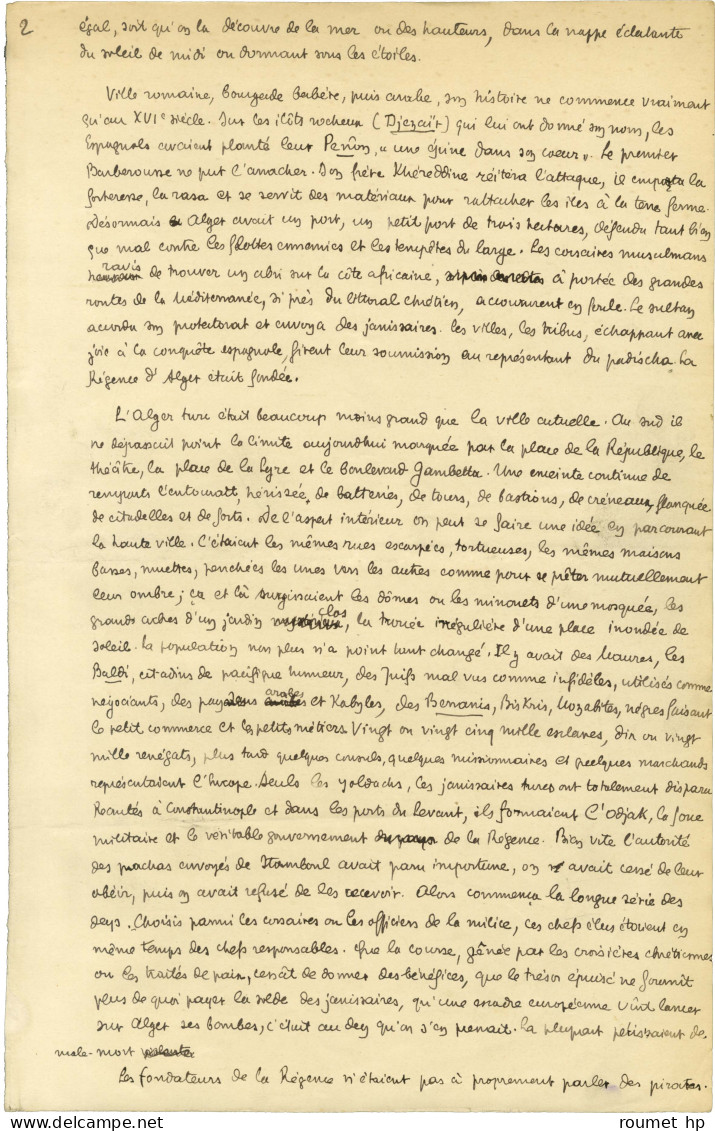 2
égal, soit qu'on la découvre de la mer ou des hauteurs, dans la nappe éclatante
du soleil de midi ou dormant sous les étoiles.
Ville romaine, bourgade berbère, puis arabe, son histoire ne commence vraiment
qu'au XVIe siècle. Sur les ilôts rocheux (Djezaïr) qui lui ont donné son nom, les
Espagnols avaient planté leur Peñon, « une épine dans son coeur ». Le premier
Barberousse ne put l'arracher. Son frère Khéreddine réitéra l'attaque, il emporta la
forteresse, la rasa et se servit des matériaux pour rattacher les iles à la terre ferme.
Désormais Alger avait un port, un petit port de trois hectares, défendu tant bien
que mal contre les flottes ennemies et les tempêtes du large. Les corsaires musulmans
ravis de trouver un abri sur la côte africaine, à portée des grandes
routes de la Méditerranée, si près du littoral chrétien, accoururent en foule. Le sultan
accorda son protectorat et envoya des janissaires. Les villes, les tribus, échappant avec
joie à la conquête espagnole, firent leur soumission au représentant du padischa. La
Régence d'Alger était fondée.
L'Alger turc était beaucoup moins grand que la ville actuelle. Au sud il
ne dépassait point la limite aujourd'hui marquée par la place de la République, le
théâtre, la place de la Lyre et le boulevard Gambetta. Une enceinte continue de
remparts l'entourait, hérissée de batteries, de tours, de bastions, de créneaux, flanquée
de citadelles et de forts. De l'aspect intérieur on peut se faire une idée en parcourant
la haute ville. C'étaient les mêmes rues escarpées, tortueuses, les mêmes maisons
basses, muettes, penchées les unes vers les autres comme pour se prêter mutuellement
leur ombre ; ça et là surgissaient les dômes ou les minarets d'une mosquée, les
grands arbres d'un jardin clos, la trouée irrégulière d'une place inondée de
soleil. La population non plus n'a point tant changé. Il y avait des Maures, les
Baldi, citadins de pacifique humeur, des Juifs mal vus comme infidèles, utilisés comme
négociants, des paysans arabes et Kabyles, des Berranis, Biskris, Mozabites, nègres faisant
le petit commerce et les petits métiers. Vingt ou vingt cinq mille esclaves, dix ou vingt
mille renégats, plus tard quelques consuls, quelques missionnaires et quelques marchands
représentaient l'Europe. Seuls les yoldachs, les janissaires turcs ont totalement disparu
Recrutés à Constantinople et dans les ports du Levant, ils formaient l'Odjak, la force
militaire et le véritable gouvernement de la Régence. Bien vite l'autorité
des pachas envoyés de Stamboul avait paru importune, on avait cessé de leur
obéir, puis on avait refusé de les recevoir. Alors commença la longue série des
deys. Choisis parmi les corsaires ou les officiers de la milice, ces chefs élus étaient en
même temps des chefs responsables. Que la course, gênée par les croisières chrétiennes
ou les traités de paix, cessât de donner des bénéfices, que le trésor épuisé ne fournit
plus de quoi payer la solde des janissaires, qu'une escadre européenne vînt lancer
sur Alger ses bombes, c'était au dey qu'on s'en prenait. La plupart périssaient de
male-mort
Les fondateurs de la Régence n'étaient pas à proprement parler des pirates.
roumet hp